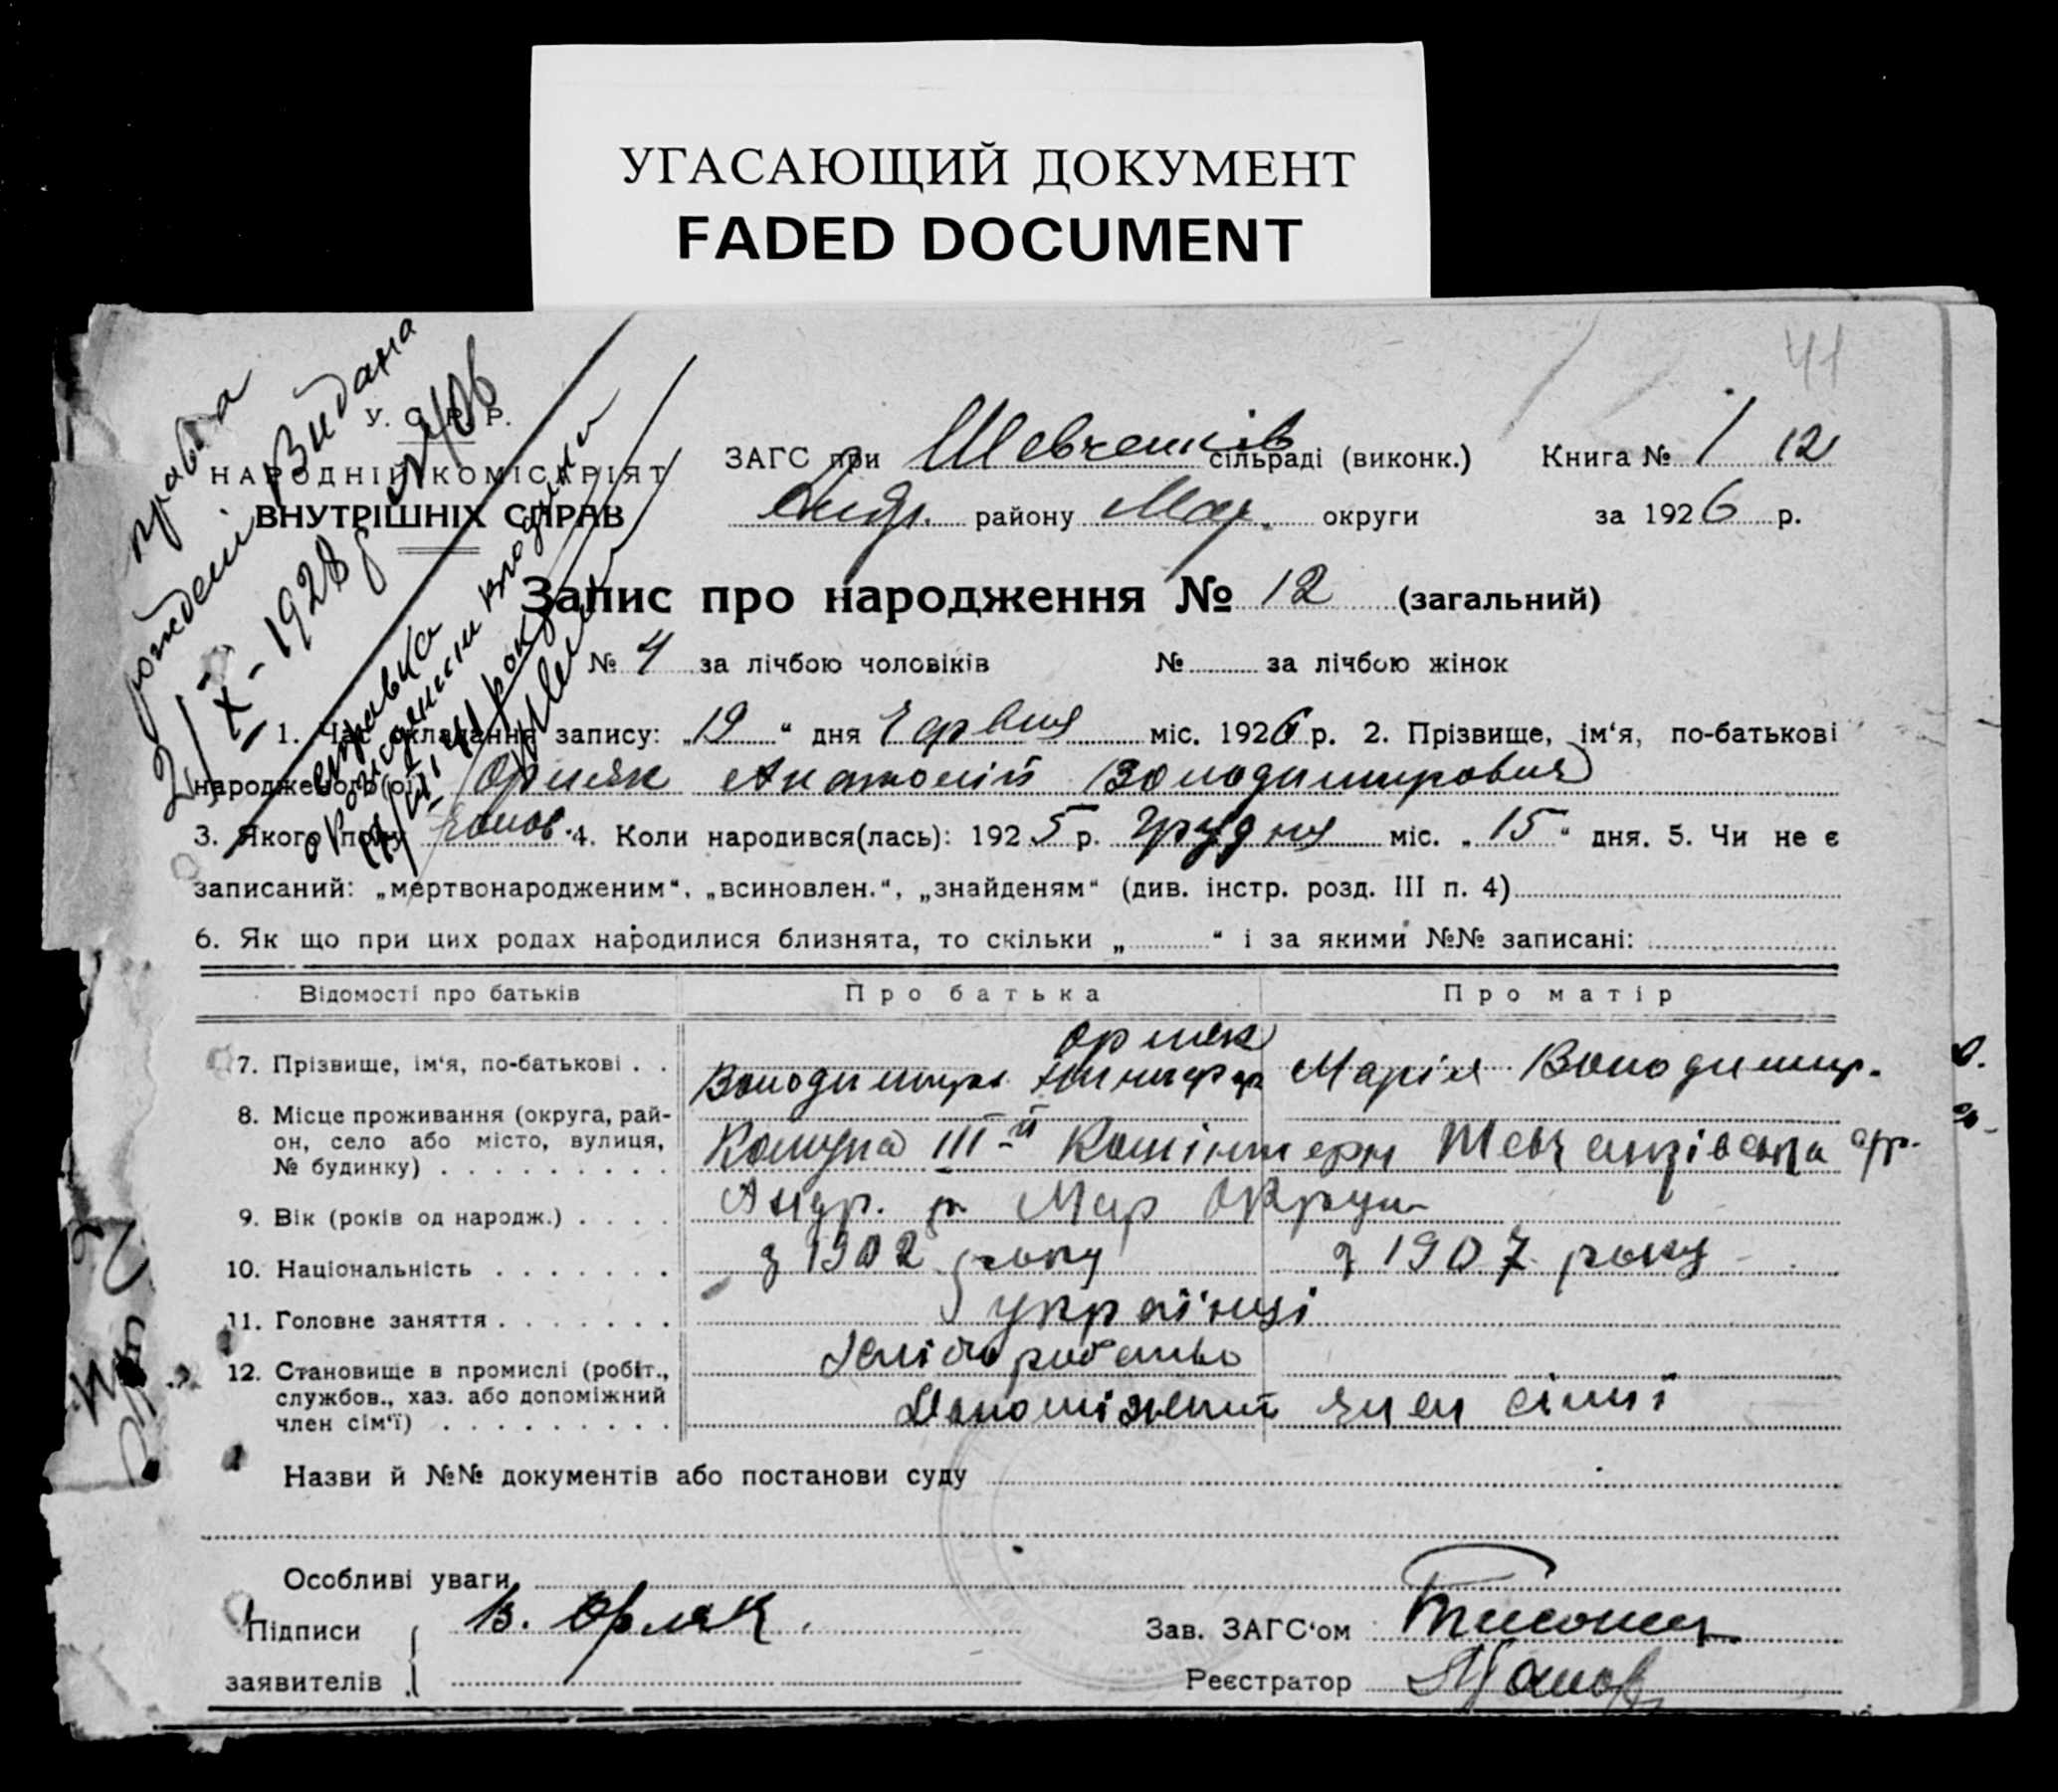 УГАСАЮЩИЙ ДОКУМЕНТ
FADED DOCUMENT
41
У. С. Р. Р.
НАРОДНІЙ КОМІСАРІЯТ
ВНУТРІШНІХ СПРАВ
Видана
№ 406
X-1928 р
справка
ЗАГС при Шевченків сільраді (виконк.) Книга № 1 12
Андр. району Мар. округи за 1926 р.
Запис про народження № 12 (загальний)
№ 4 за лічбою чоловіків № за лічбою жінок
1. Час складання запису: „19“ дня Червня міс. 1926 р. 2. Прізвище, ім‘я, по-батькові
народженого(ої) Орляк Анатолій Володимирович
3. Якого полу чолов. 4. Коли народився(лась): 1925 р. Грудня міс. „15“ дня. 5. Чи не є
записаний: „мертвонародженим“, „всиновлен.“, „знайденям“ (див. інстр. розд. III п. 4)
6. Як що при цих родах народилися близнята, то скільки „ “ і за якими №№ записані:
Відомості про батьків Про батька Про матір
7. Прізвище, ім‘я, по-батькові . . Орляк Володимир Марія Володимир.
8. Місце проживання (округа, рай-
он, село або місто, вулиця,
№ будинку) Комуна III-й Комінтерн Шевченківська
9. Вік (років од народж.) . . . . Андр. р. Мар округи
10. Національність . . . . . . . з 1902 року з 1907 року
11. Головне заняття . . . . . . . українці
12. Становище в промислі (робіт.,
службов., хаз. або допоміжний
член сім‘ї) . . . . . . . . . Допоміжний член сімї
Назви й №№ документів або постанови суду
Особливі уваги
Підписи В. Орляк. Зав. ЗАГС‘ом
заявителів Реєстратор